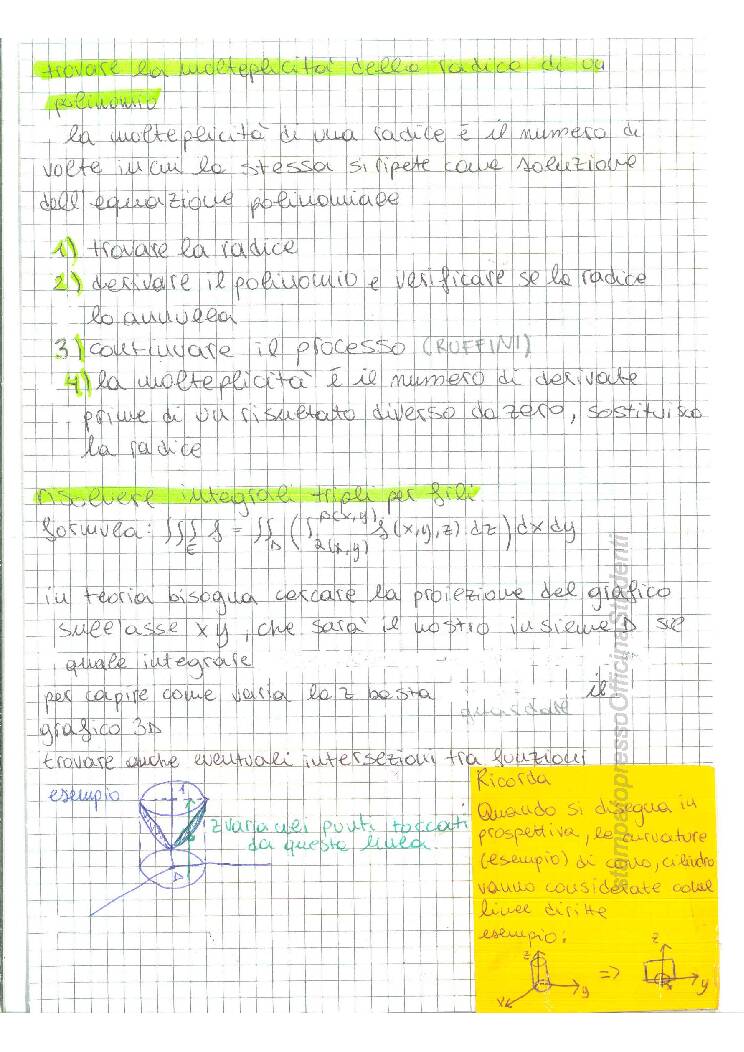 trovare la molteplicità della radice di un
polinomio
la molteplicità di una radice è il numero di
volte in cui la stessa si ripete come soluzione
dell'equazione polinomiale
1) trovare la radice
2) derivare il polinomio e verificare se la radice
lo annulla
3) continuare il processo (RUFFINI)
4) la molteplicità è il numero di derivate
prime di un risultato diverso da zero, sostituisco
la radice
risolvere integrali tripli per fili
formula: ∫∫∫_E f = ∫∫_D (∫_{α(x,y)}^{β(x,y)} f(x,y,z) dz) dx dy
in teoria bisogna cercare la proiezione del grafico
sull'asse xy, che sarà il nostro insieme D sul
quale integrare
per capire come varia la z basta il
grafico 3D
trovare anche eventuali intersezioni tra funzioni
esempio
1
z varia nei punti toccati
da questa linea
D
Ricorda
Quando si disegna in
prospettiva, le curvature
(esempio) di cono, cilindro
vanno considerate come
linee diritte
esempio:
z
y
x
=>
z
y
x
stampatopressoOfficinaStudenti